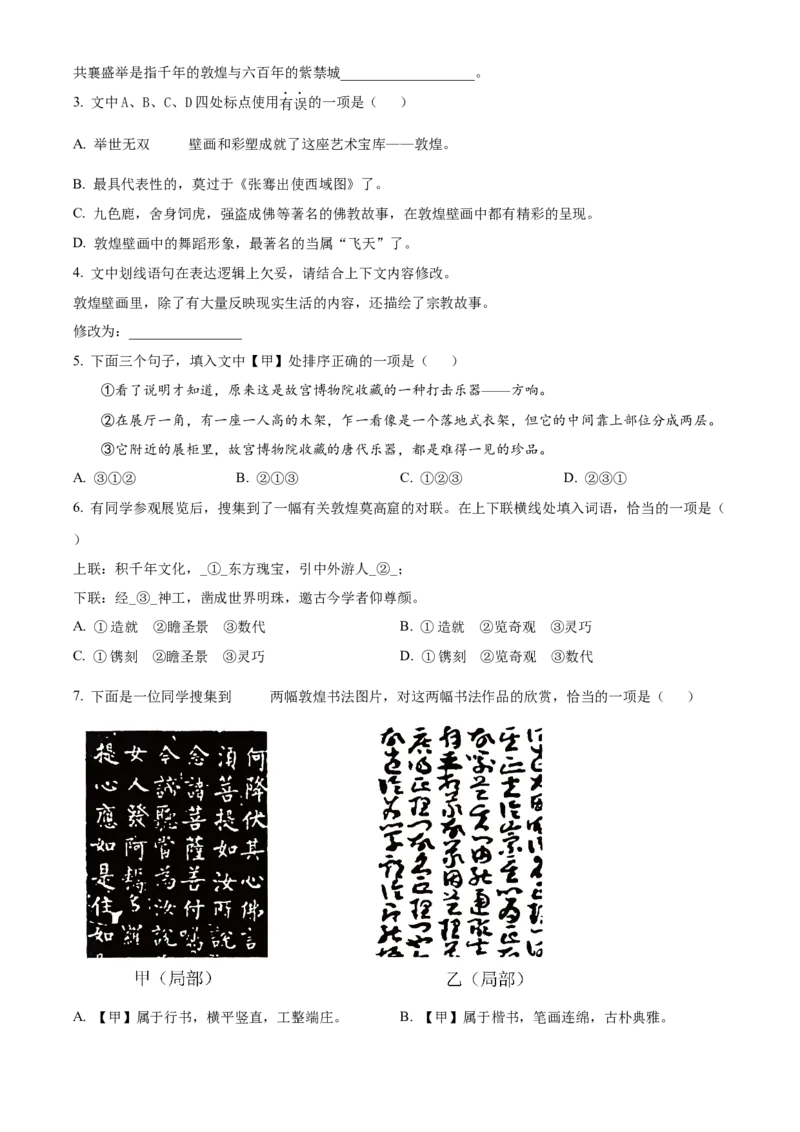 共襄盛举是指千年的敦煌与六百年的紫禁城____________________。
3. 文中A、B、C、D四处标点使用有误的一项是（　　）
A. 举世无双　　壁画和彩塑成就了这座艺术宝库——敦煌。
B. 最具代表性的，莫过于《张骞出使西域图》了。
C. 九色鹿，舍身饲虎，强盗成佛等著名的佛教故事，在敦煌壁画中都有精彩的呈现。
D. 敦煌壁画中的舞蹈形象，最著名的当属“飞天”了。
4. 文中划线语句在表达逻辑上欠妥，请结合上下文内容修改。
敦煌壁画里，除了有大量反映现实生活的内容，还描绘了宗教故事。
修改为：________________
5. 下面三个句子，填入文中【甲】处排序正确的一项是（　　）
①看了说明才知道，原来这是故宫博物院收藏的一种打击乐器——方响。
②在展厅一角，有一座一人高的木架，乍一看像是一个落地式衣架，但它的中间靠上部位分成两层。
③它附近的展柜里，故宫博物院收藏的唐代乐器，都是难得一见的珍品。
A. ③①②　　B. ②①③　　C. ①②③　　D. ②③①
6. 有同学参观展览后，搜集到了一幅有关敦煌莫高窟的对联。在上下联横线处填入词语，恰当的一项是（
）
上联：积千年文化，_①_东方瑰宝，引中外游人_②_；
下联：经_③_神工，凿成世界明珠，邀古今学者仰尊颜。
A. ①造就　②瞻圣景　③数代　　B. ①造就　②览奇观　③灵巧
C. ①镌刻　②瞻圣景　③灵巧　　D. ①镌刻　②览奇观　③数代
7. 下面是一位同学搜集到　　两幅敦煌书法图片，对这两幅书法作品的欣赏，恰当的一项是（　　）
何降伏其心佛言
须菩提如汝所说
念诸菩萨善付嘱
今谛听当为汝说
女人发阿耨多罗
提心应如是住如
甲（局部）　　乙（局部）
A. 【甲】属于行书，横平竖直，工整端庄。　　B. 【甲】属于楷书，笔画连绵，古朴典雅。